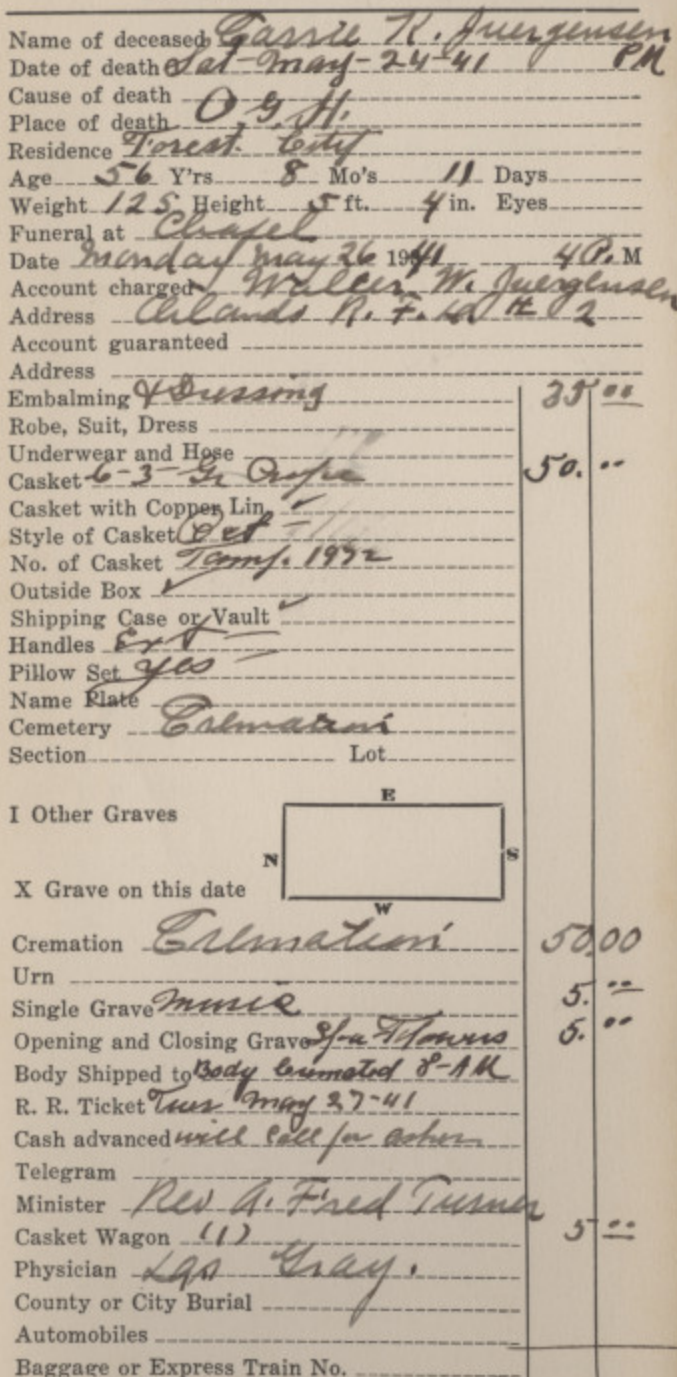 Name of deceased Carrie K. Juergensen
Date of death Sat-May-24-41 PM
Cause of death
Place of death O. G. H.
Residence Forest City
Age 56 Y'rs 8 Mo's 11 Days
Weight 125 Height 5 ft. 4 in. Eyes
Funeral at Chapel
Date Monday May 26 1941 4 P. M
Account charged Walter W. Juergensen
Address Orlando R. F. D # 2
Account guaranteed
Address
Embalming & Dressing 35 00
Robe, Suit, Dress
Underwear and Hose
Casket 6-3- Gr 50. 00
Casket with Copper Lin ✓
Style of Casket Oct
No. of Casket 1932
Outside Box ✓
Shipping Case or Vault ✓
Handles Ext
Pillow Set yes
Name Plate
Cemetery Cremation
Section Lot
E
I Other Graves
N S
X Grave on this date
W
Cremation Cremation 50.00
Urn
Single Grave music 5. 00
Opening and Closing Grave Flowers 5. 00
Body Shipped to Body Cremated 8-AM
R. R. Ticket Tues May 27-41
Cash advanced will call for ashes
Telegram
Minister Rev A. Fred Turner
Casket Wagon (1) 5 00
Physician Gray.
County or City Burial
Automobiles
Baggage or Express Train No.